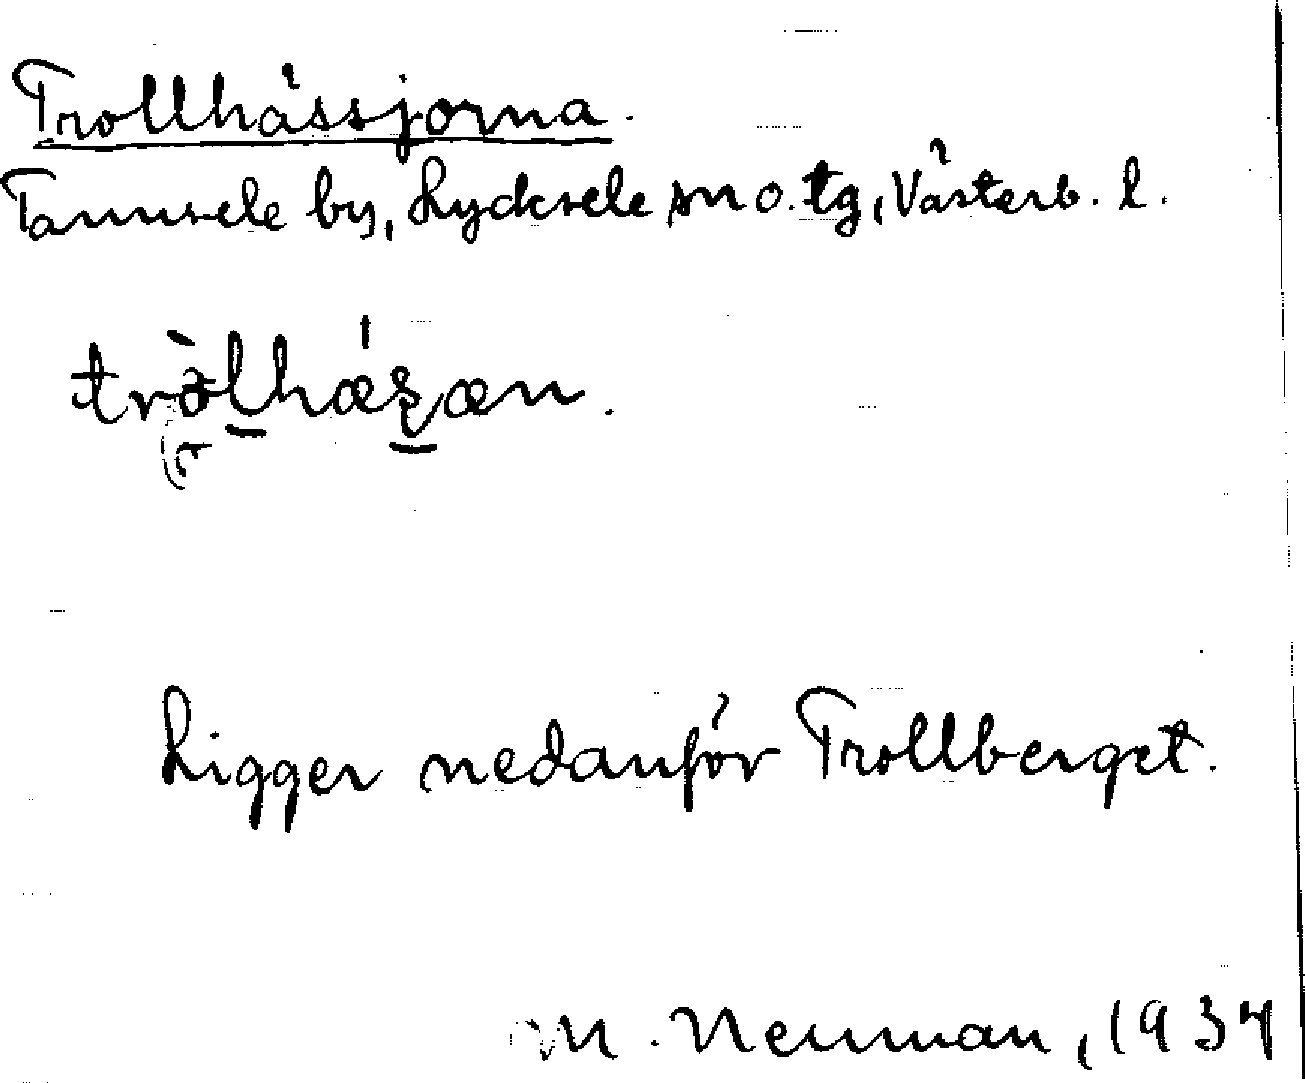 Trollhässjorna.
Tannsele by, Lycksele sn o. tg, Västerb. l.
Ligger nedanför Trollberget.
M. Neuman, 1934